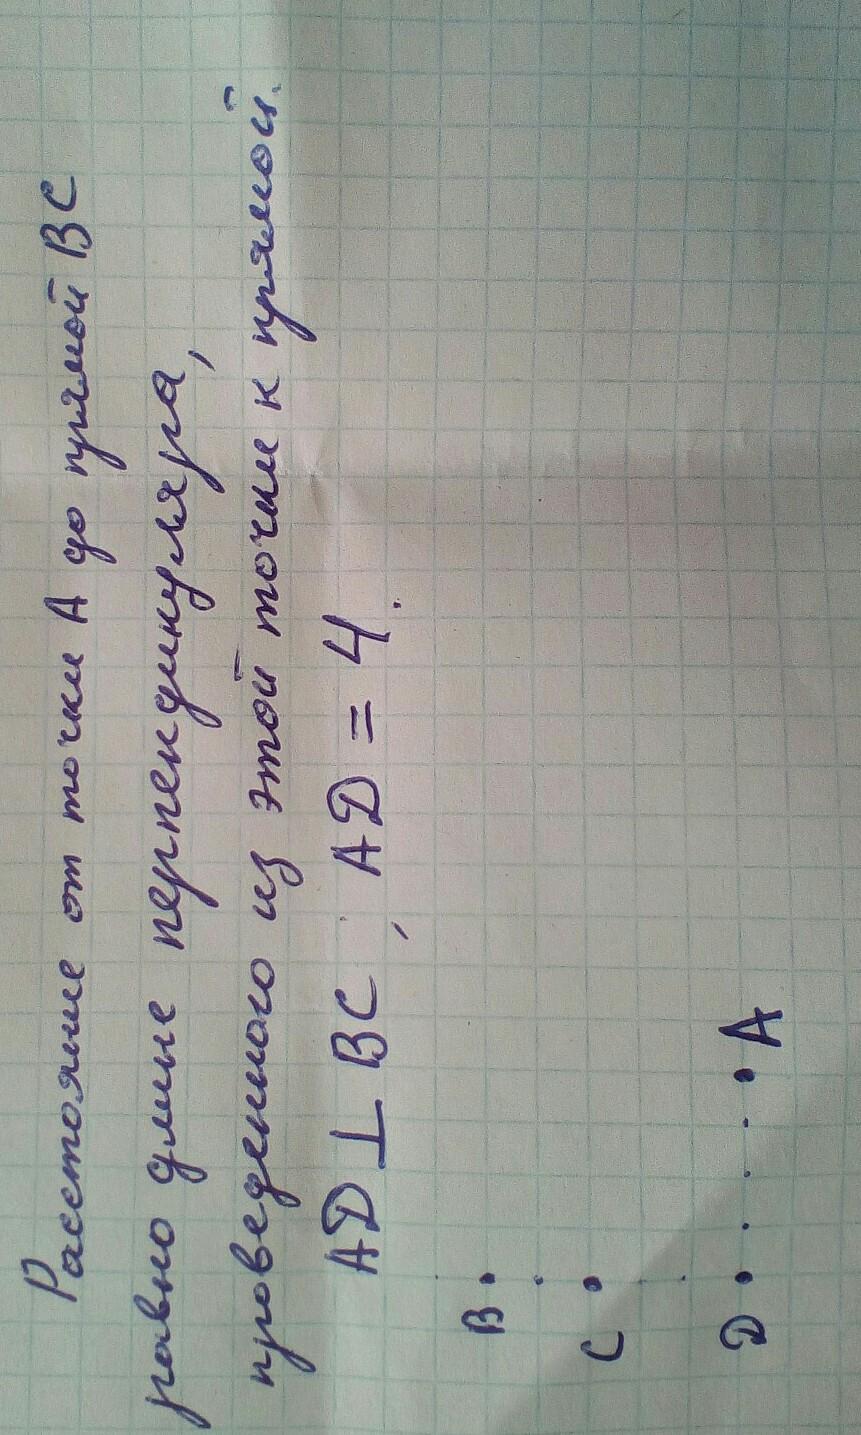 Расстояние от точки А до прямой ВС
равно длине перпендикуляра,
проведенного из этой точки к прямой.
AD ⊥ BC, AD = 4.
B
C
D A